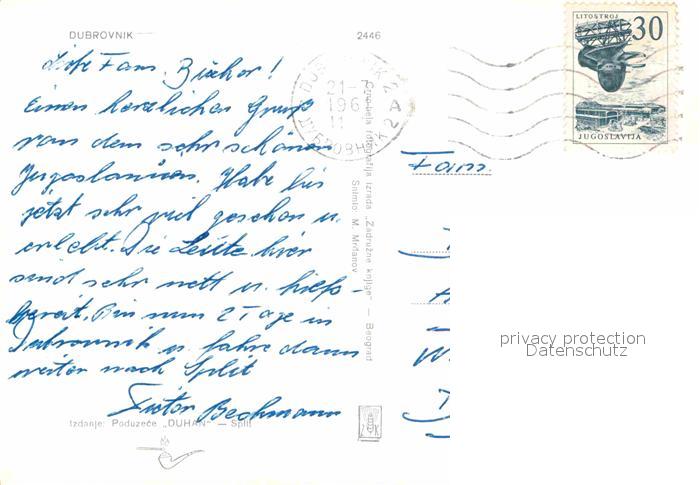 DUBROVNIK
2446
LITOSTROJ
30
JUGOSLAVIJA
Liebe Fam. Bischor!
Einen herzlichen Gruß
von dem sehr schönen
Jugoslawien. Habe bis
jetzt sehr viel gesehen u.
erlebt. Die Leute hier
sind sehr nett u. hilfs-
bereit. Bin nun 2 Tage in
Dubrovnik u. fahre dann
weiter nach Split
Bechmann
21-7
196
11
Kolor fotografija izrada „Zadružne knjige" — Beograd
Snimio M. Mrđanov
Fam.
privacy protection
Datenschutz
Izdanje: Poduzeće „DUHAN" — Split